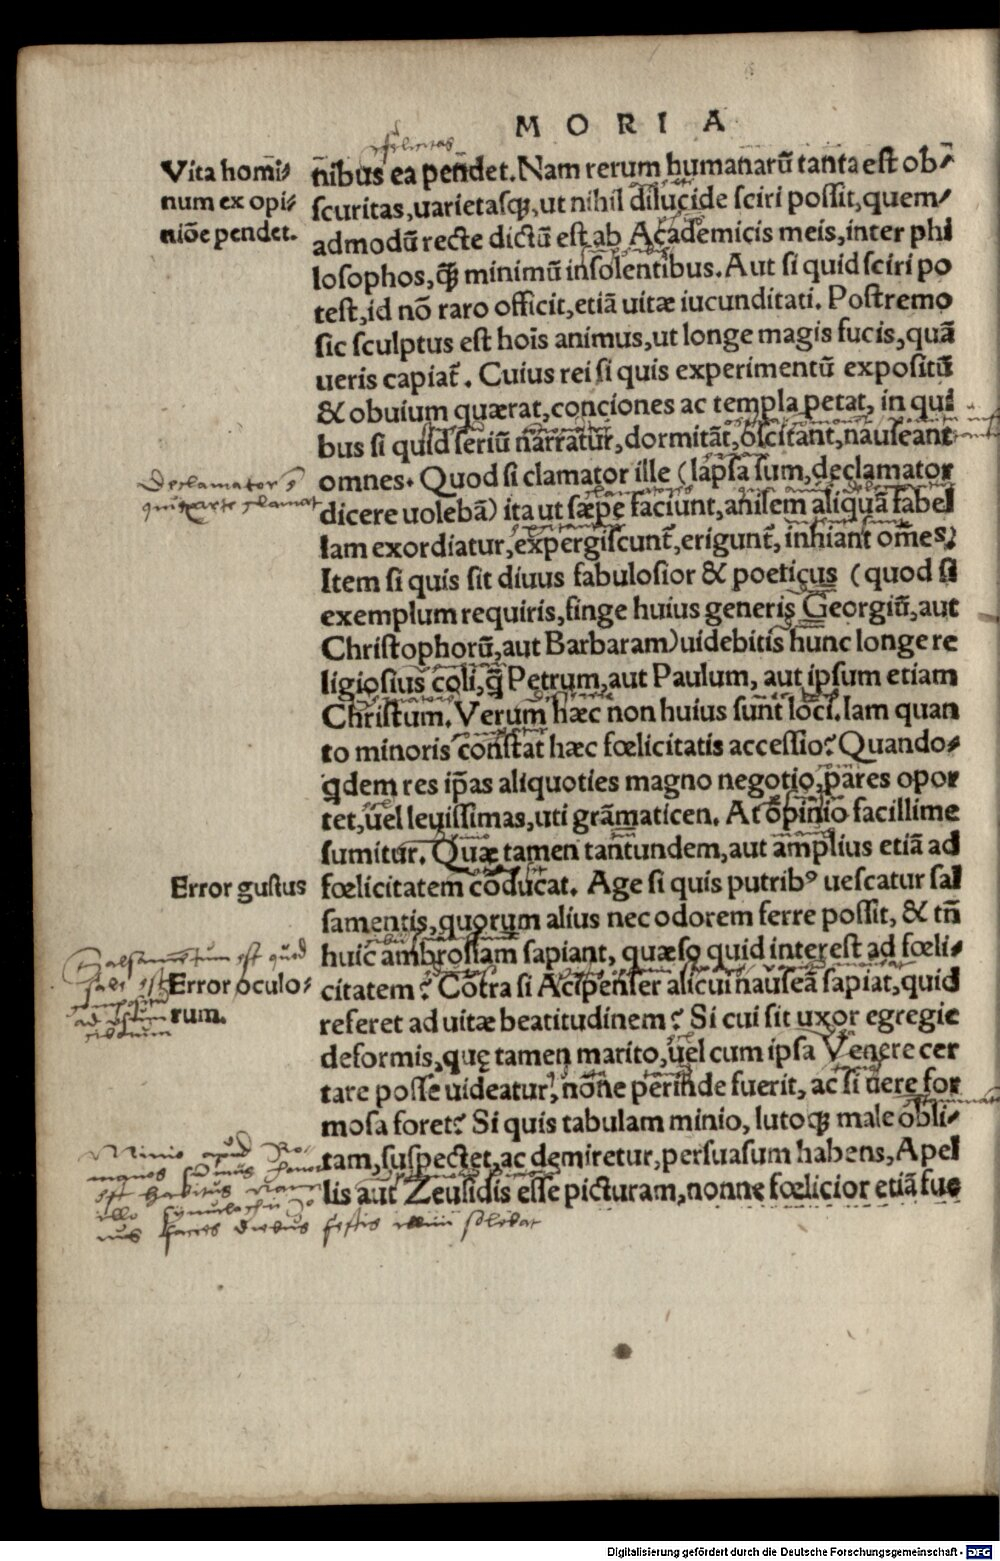 MORIA
felicitas
Vita homi̅⸗
num ex opi⸗
nio̅e pendet.
n̅ibus ea pen̅det. Nam rerum humanaru̅ tanta est ob⸗
scuritas, uarietasq;, ut nihil dilucide sciri possit, quem⸗
admodu̅ recte dictu̅ est ab Academicis meis, inter phi
losophos, q̅ꝫ minimu̅ insolentibus. Aut si quid sciri po
test, id no̅ raro officit, etia̅ uitæ iucunditati. Postremo
sic sculptus est hoi̅s animus, ut longe magis fucis, qua̅
ueris capiat̃. Cuius rei si quis experimentu̅ expositu̅
& obuium quærat, conciones ac templa petat, in qui
bus si quid seriu̅ narratur, dormita̅t, oscitant, nauseant
omnes. Quod si clamator ille (lapsa sum, declamator
dicere uoleba̅) ita ut sæpe faciunt, anilem aliqua̅ fabel
lam exordiatur, expergiscunt̃, erigunt̃, inhiant om̅es;
Item si quis sit diuus fabulosior & poeticus (quod si
exemplum requiris, finge huius generis Georgiu̅, aut
Christophoru̅, aut Barbaram) uidebitis hunc longe re
ligiosius coli, q̅ Petrum, aut Paulum, aut ipsum etiam
Christum. Verum hæc non huius sunt loci. Iam quan
to minoris constat hæc fœlicitatis accessio? Quando⸗
q̇dem res ip̅as aliquoties magno negotio, pares opor
tet, uel leuissimas, uti gra̅maticen. At opinio facillime
sumitur. Quæ tamen tantundem, aut amplius etia̅ ad
fœlicitatem co̅ducat. Age si quis putribꝰ uescatur sal
samentis, quorum alius nec odorem ferre possit, & tn̅
huic ambrosiam sapiant, quæso quid interest ad fœli⸗
citatem? Co̅tra si Acipenser alicui nausea̅ sapiat, quid
referet ad uitæ beatitudinem? Si cui sit uxor egregie
deformis, quę tamen marito, uel cum ipsa Venere cer
tare posse uideatur, no̅ne perinde fuerit, ac si uere for
mosa foret? Si quis tabulam minio, lutoq; male obli⸗
tam, suspectet, ac demiretur, persuasum habens, Apel
lis aut Zeusidis esse picturam, nonne fœlicior etia̅ fue
Declamator ē
qui arte clamat
Error gustus
Salsamentum est quod
sale est
compositum
ad usum
ciborum
Error oculo⸗
rum.
Minio apud Ro⸗
manos
est habitus
illo
facies diebus festis illini solebat